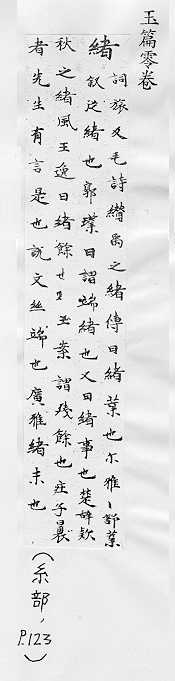 玉篇零卷
緒 詞旅反毛詩纘禹之緒傳曰緒業也尒雅〻舒業
敘从緒也郭璞曰謂端緒也又曰緒事也楚辞欸
秋之緒風王逸曰緒餘也又王業謂殘餘也庄子曩
者先生有言是也說文丝端也廣雅緒未也
(糸部,
P.123)